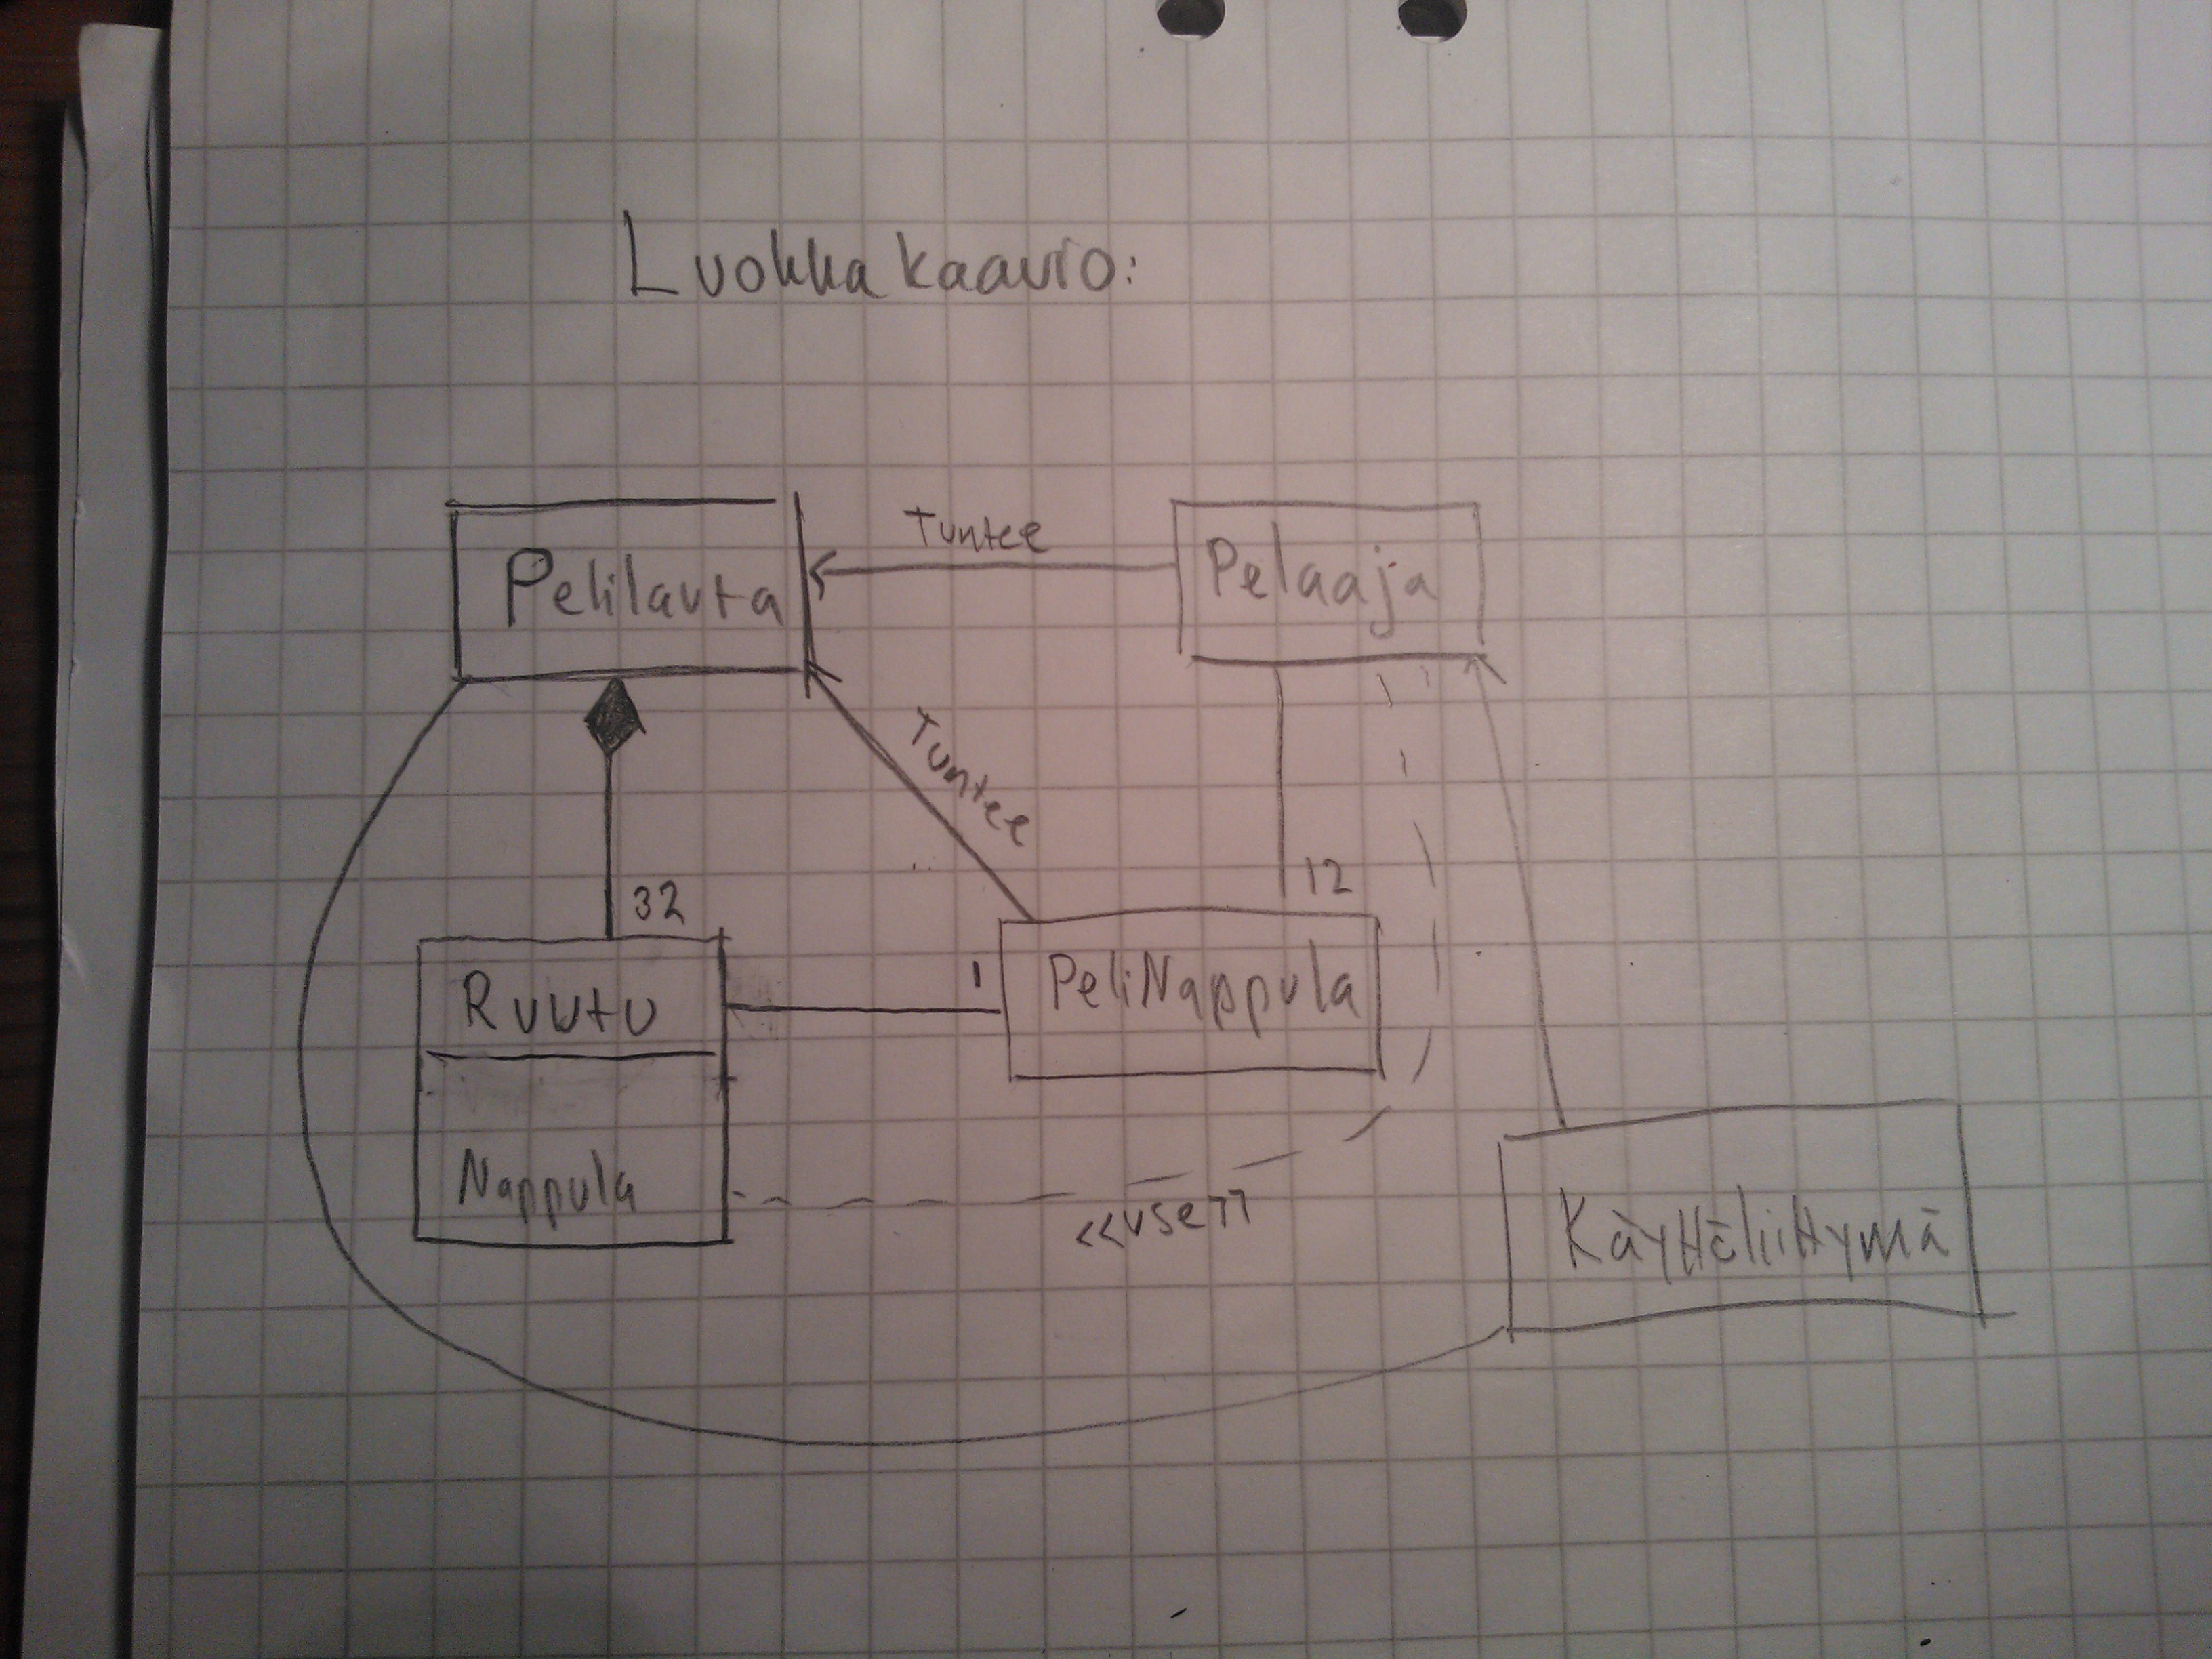 Luokkakaavio:
Pelilauta
Tuntee
Pelaaja
Tuntee
32
12
Ruutu
1
PeliNappula
Nappula
<<use>>
Käyttöliittymä